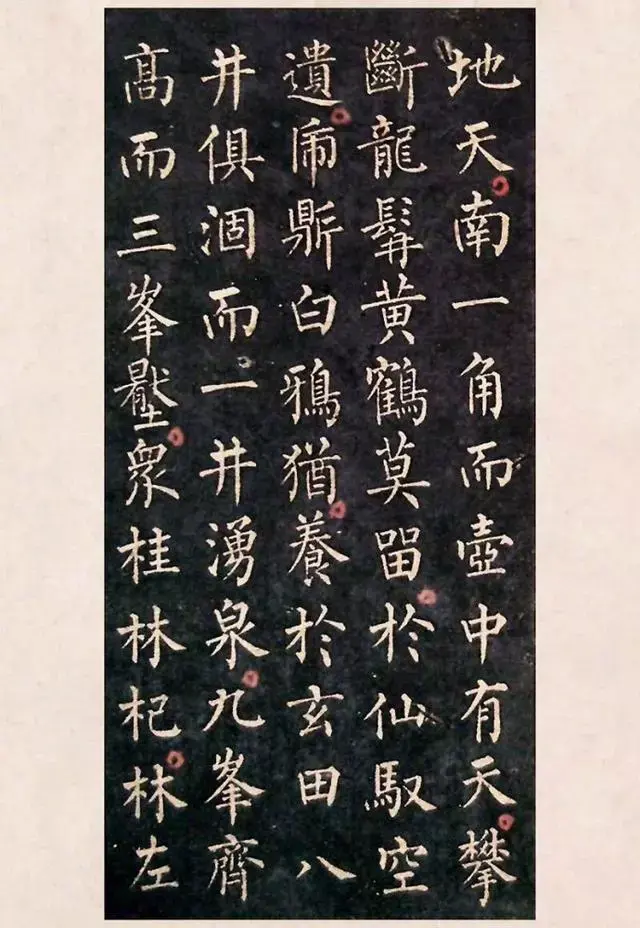 地天南一角而壺中有天攀
斷龍髯黄鶴莫留於仙馭空
遺虎鼎白鴉猶養於玄田八
井俱涸而一井湧泉九峯齊
髙而三峯壓衆桂林杞林左